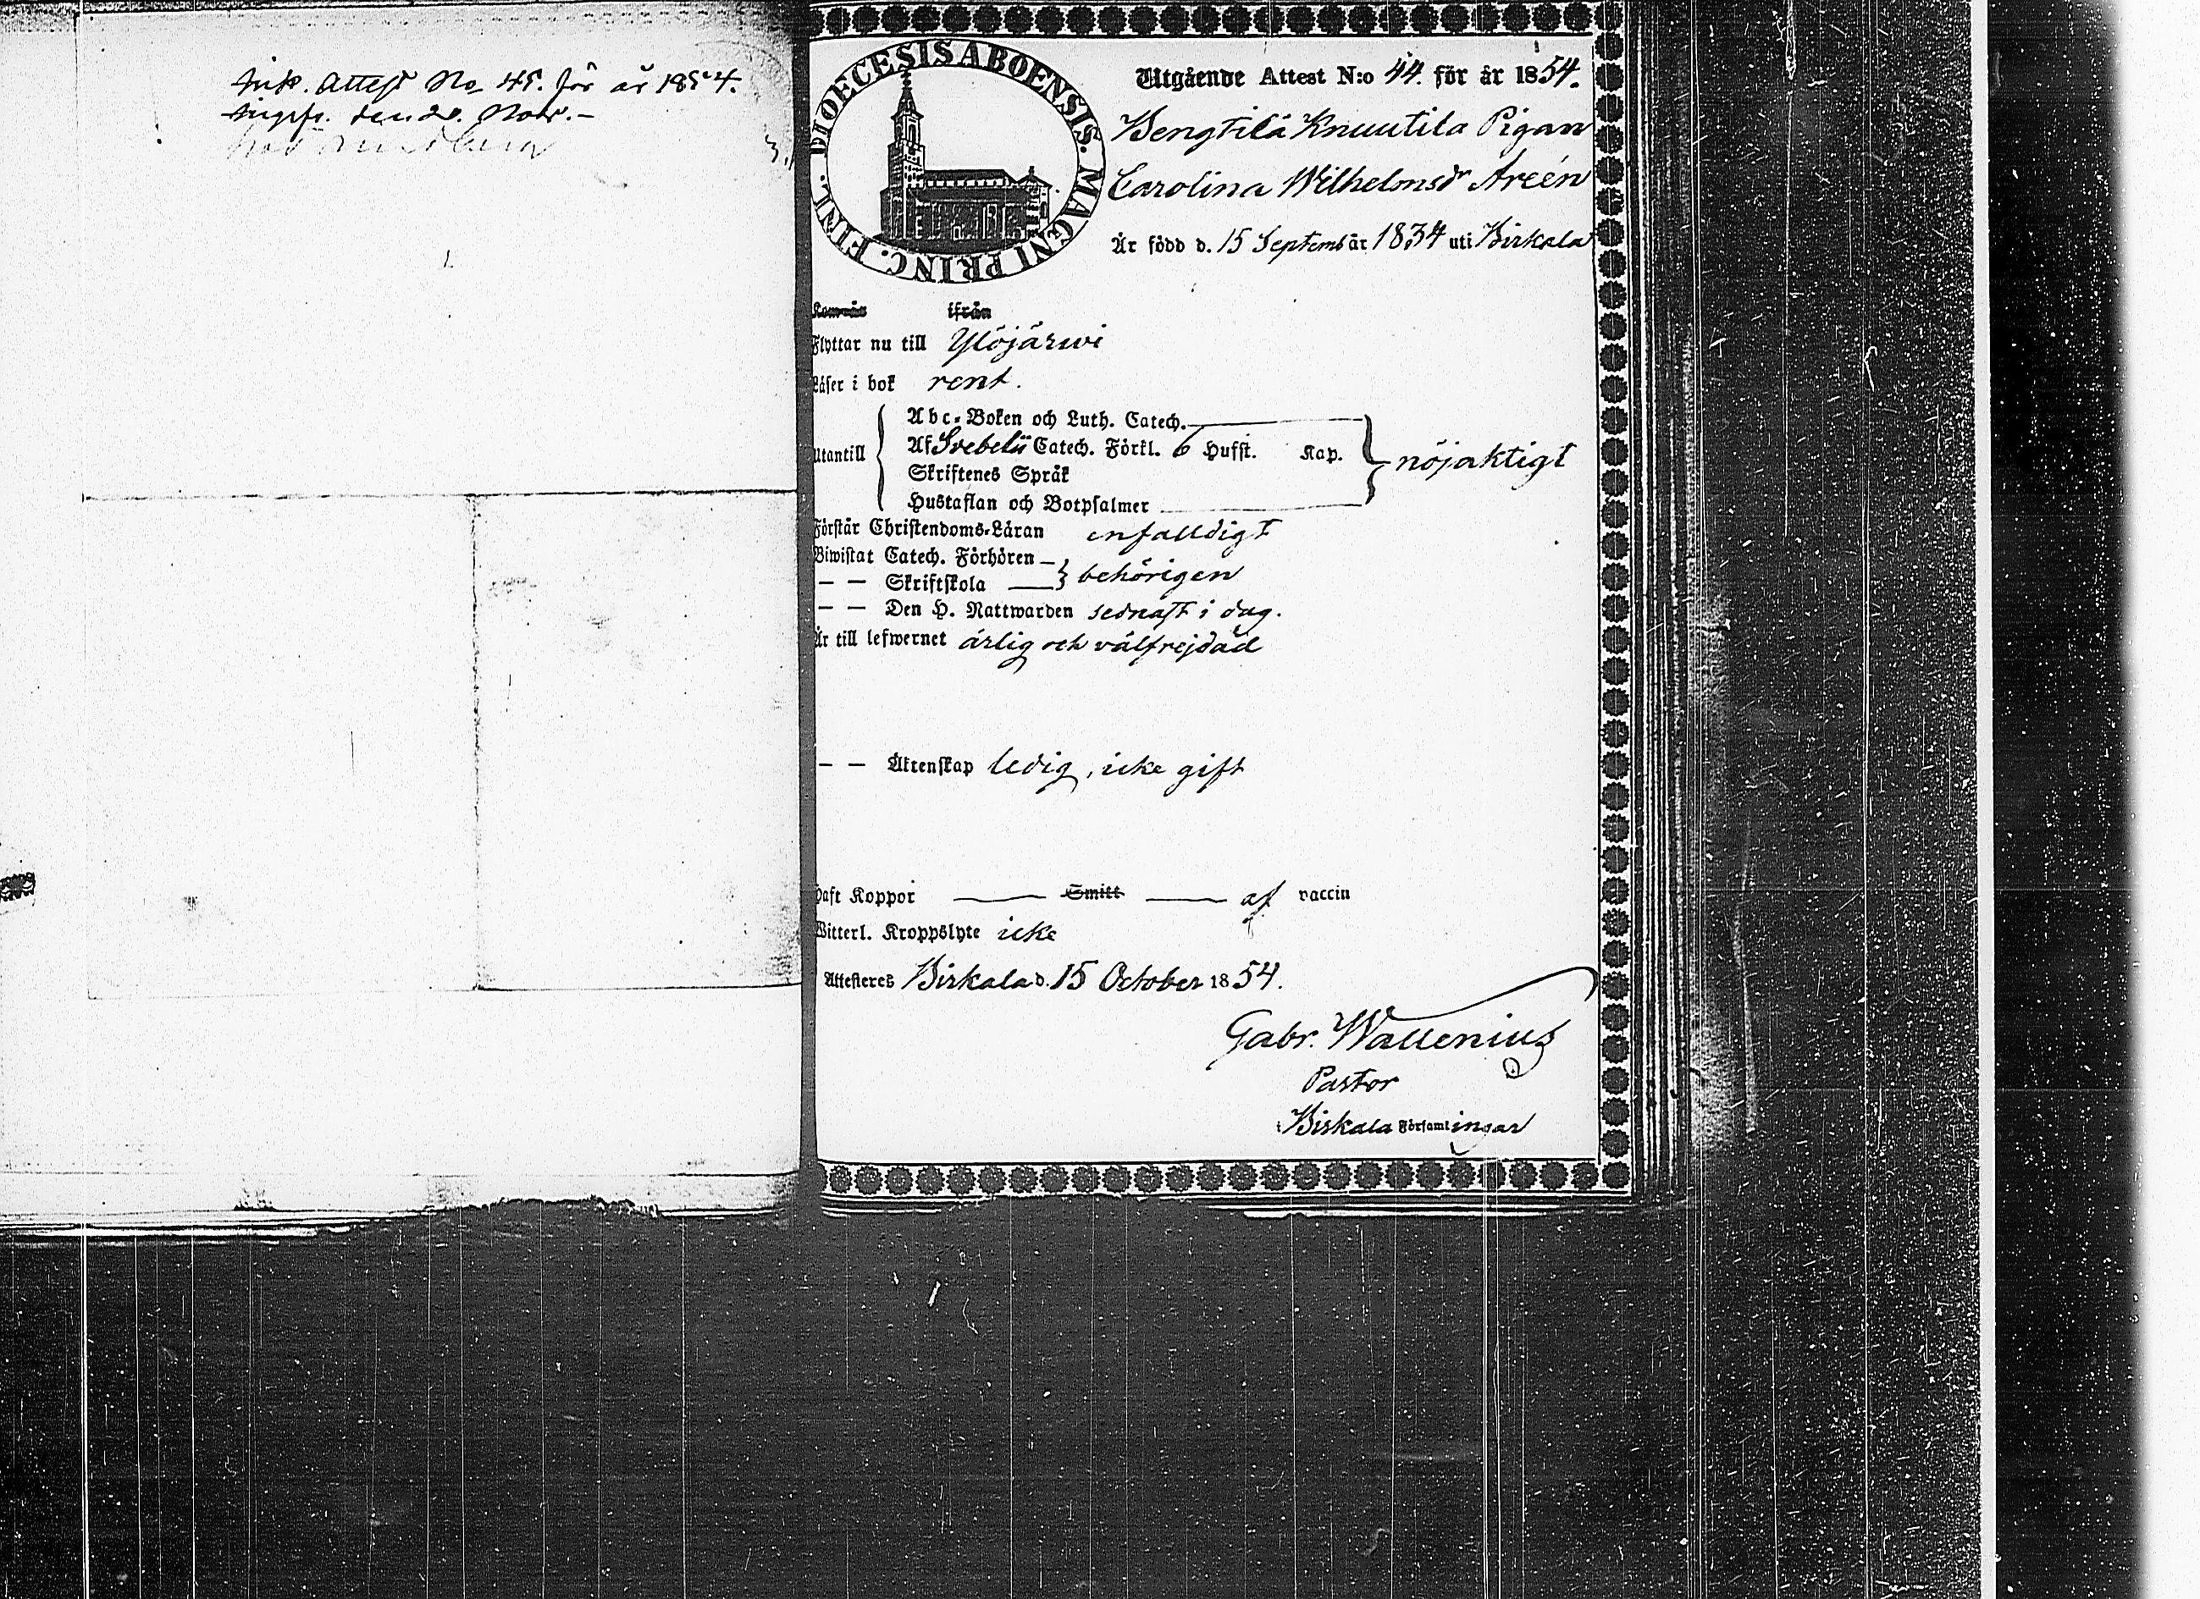 Ink. Attest No 45. för år 1854.
den 20. Novr. –
DIOECESIS ABOENSIS. MAGNI PRINC. FINL.
Utgående Attest N:o 44. för år 1854.
Bengtilä Knuutila Pigan
Carolina Wilhelmsdr Areén
Är född d. 15 Septemb år 1834 uti Birkala
ifrån
Flyttar nu till Ylöjärwi
Läser i bok rent.
Abc-Boken och Luth. Catech.
Utantill Af Svebelii Catech. Förkl. 6 Hufst. Kap. nöjaktigt
Skriftenes Språk
Hustaflan och Botpsalmer
Förstår Christendoms-Läran enfalldigt
Biwistat Catech. Förhören –
– – Skriftskola behörigen
– – Den H. Nattwarden sednast i dag.
Är till lefwernet ärlig och välfrejdad
– – Äktenskap ledig, icke gift
Haft Koppor Smitt af vaccin
Witterl. Kroppslyte icke
Attesteres Birkala d. 15 October 1854.
Gabr. Wallenius
Pastor
i Birkala Församlingar